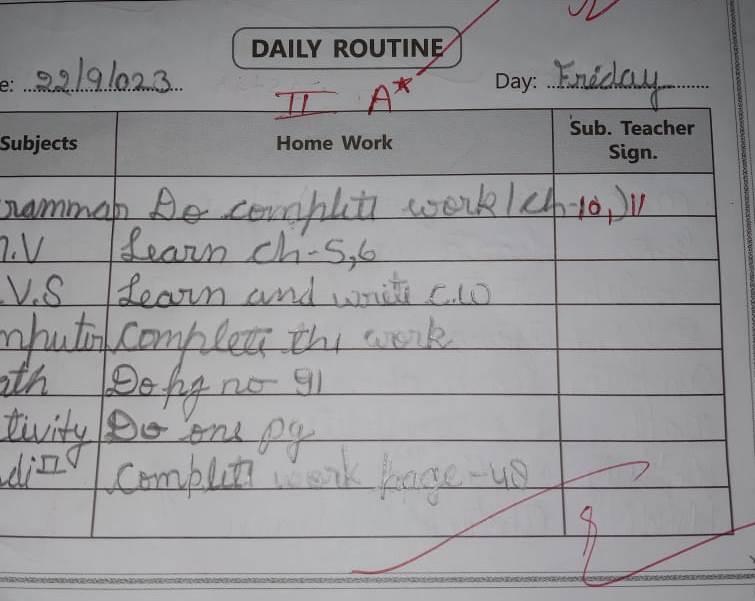 DAILY ROUTINE
e: 22/9/023 Day: Friday
II A*
Subjects Home Work Sub. Teacher Sign.
rammar Do complete work (ch-10,) 11
.V Learn ch-5,6
.V.S Learn and write C.W
mputer Complete the work
ath Do pg no 91
tivity Do one pg
di II Complete work page-48